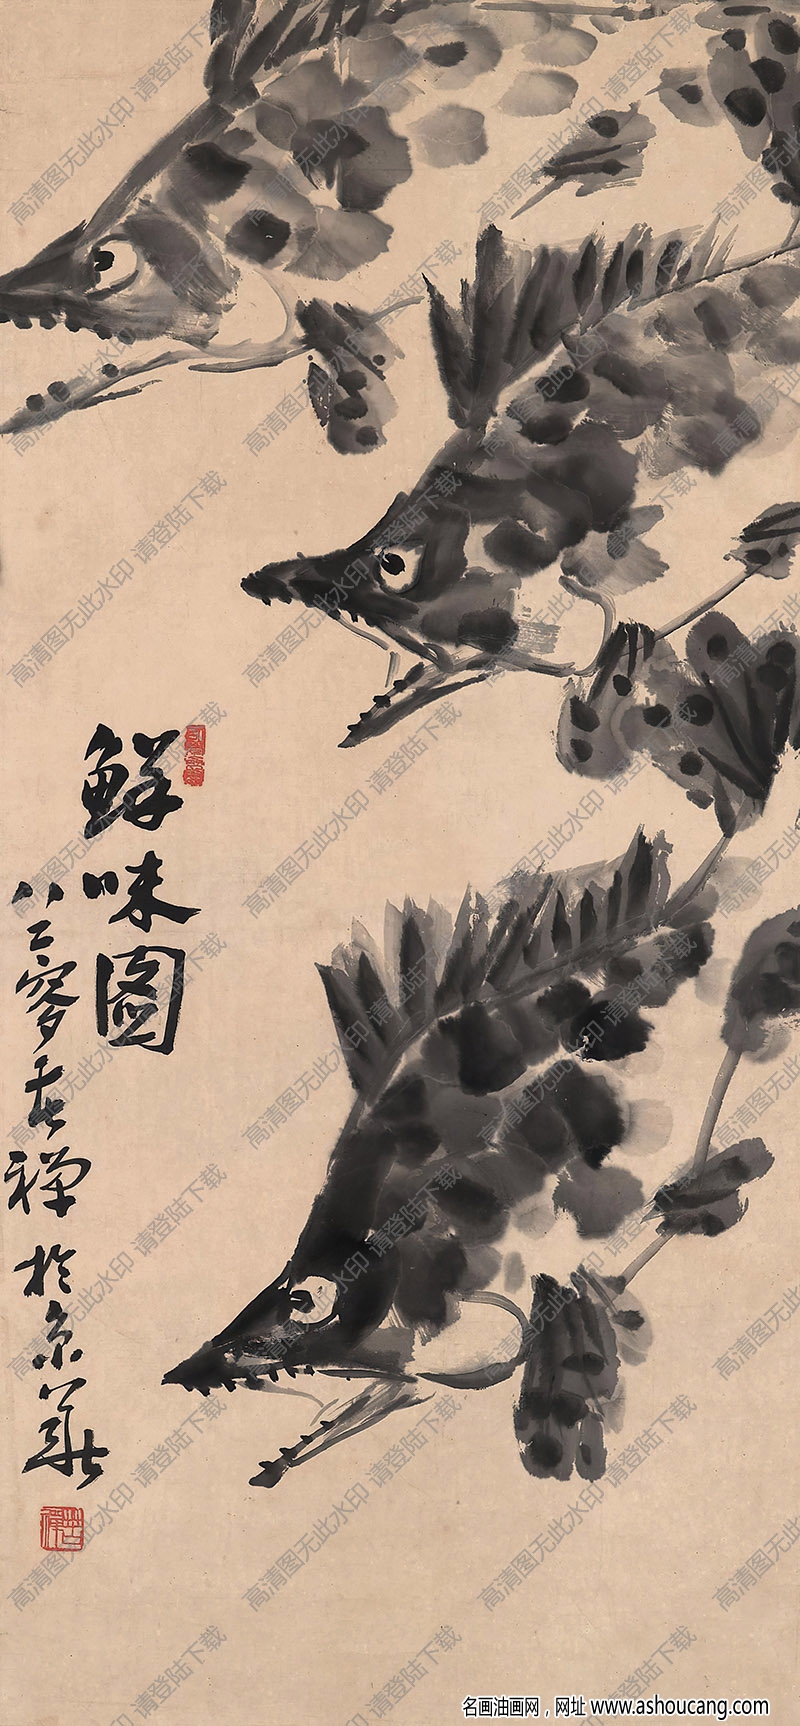 鲜味图
八二叟苦禅
于京华
高清图无此水印 请登陆下载
名画油画网，网址 www.ashoucang.com